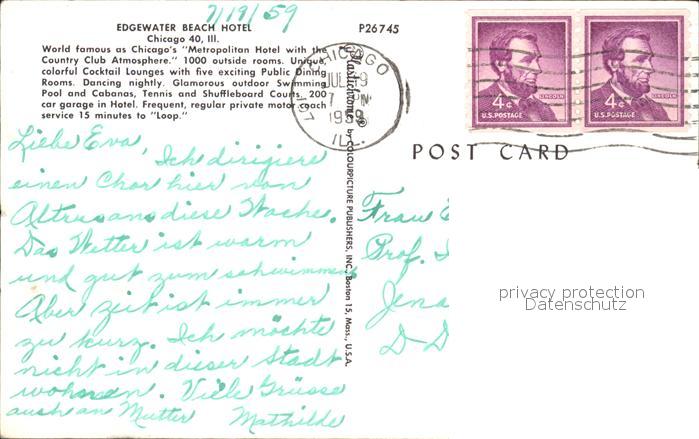 7/19/59
EDGEWATER BEACH HOTEL
Chicago 40, Ill.
P26745
World famous as Chicago's "Metropolitan Hotel with the
Country Club Atmosphere." 1000 outside rooms. Unique,
colorful Cocktail Lounges with five exciting Public Dining
Rooms. Dancing nightly. Glamorous outdoor Swimming
Pool and Cabanas, Tennis and Shuffleboard Courts. 200
car garage in Hotel. Frequent, regular private motor coach
service 15 minutes to "Loop."
CHICAGO
JUL
PM
ILL.
4¢ LINCOLN
U.S. POSTAGE
4¢ LINCOLN
U.S. POSTAGE
POST CARD
Plastichrome® by COLOURPICTURE PUBLISHERS, INC., Boston 15, Mass., U.S.A.
Liebe Eva,
Ich dirigiere
einen Chor hier von
Altrusans diese Woche.
Das Wetter ist warm
und gut zum schwimmen
Aber zeit ist immer
zu kurz. Ich möchte
nicht in dieser Stadt
wohnen. Viele Grüsse
auch an Mutter Mathilde
Frau
Prof.
Jena
D-D
privacy protection
Datenschutz